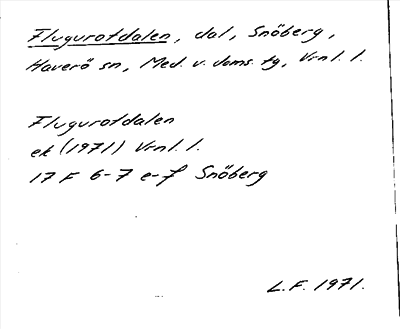 Flugurotdalen, dal, Snöberg,
Haverö sn, Med. v. doms. tg, Vrnl. l.
Flugurotdalen
ek (1971) Vrnl. l.
17 F 6-7 e-f Snöberg
L.F. 1971.